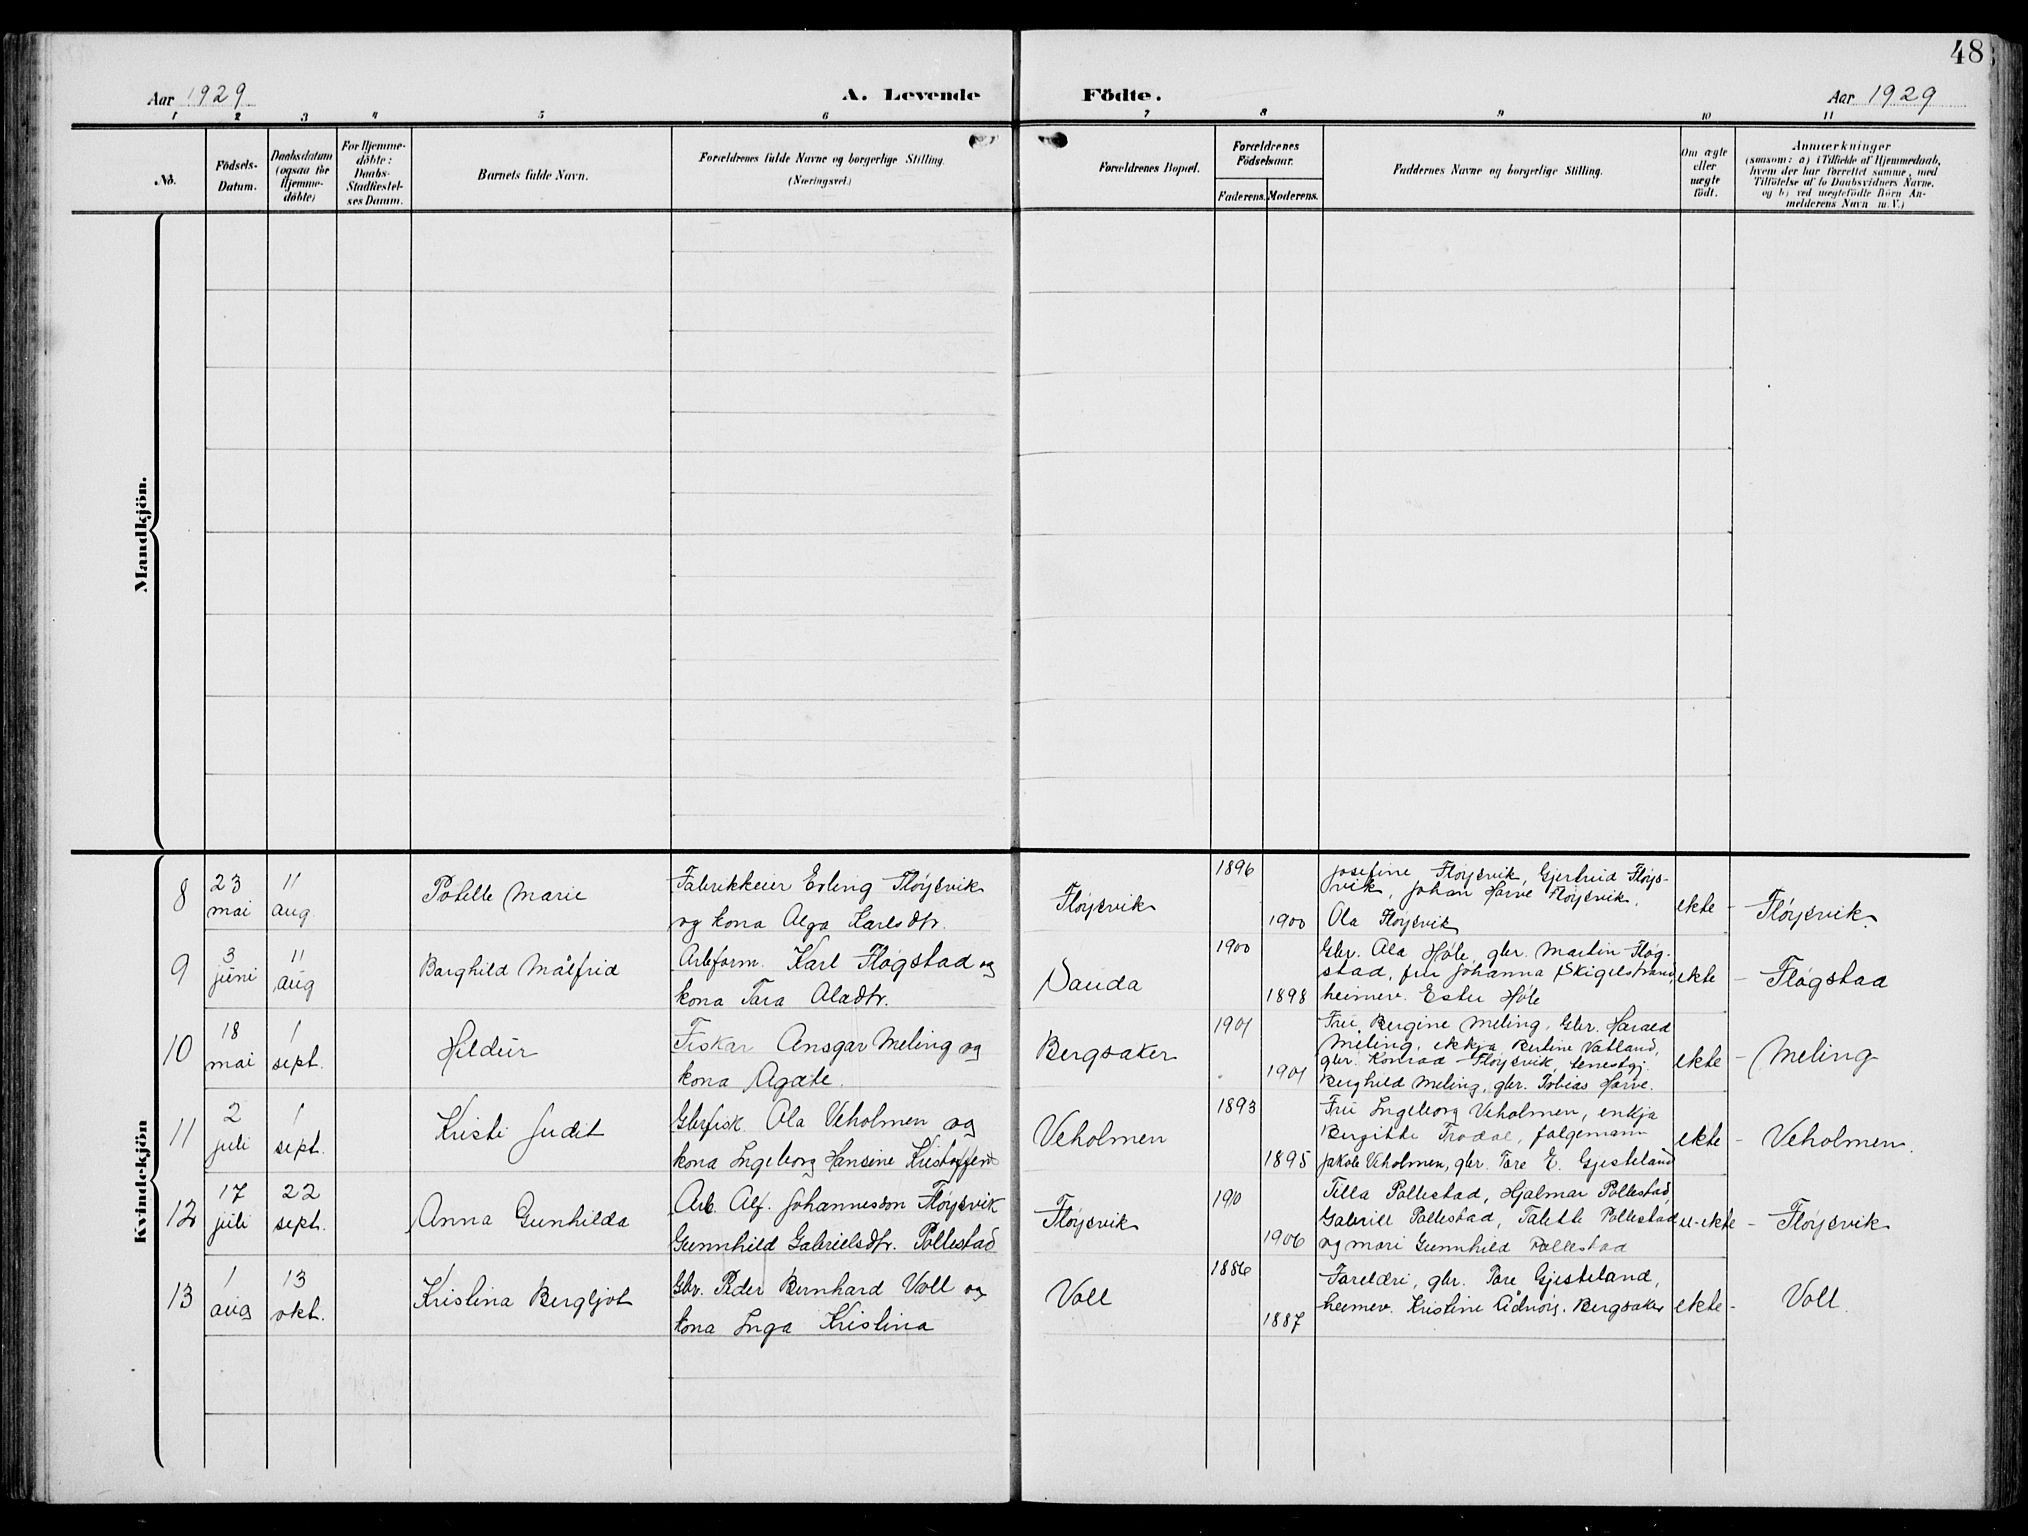 48
Aar 1929
A. Levende
Födte.
Aar 1929
1 2 3 4 5 6 7 8 9 10 11
No.
Födsels-
Datum.
Daabsdatum
(ogsaa for
Hjemme-
döbte)
For Hjemme-
döbte:
Daabs-
Stadfæstel-
ses Datum.
Barnets fulde Navn.
Forældrenes fulde Navne og borgerlige Stilling.
(Næringsvei.)
Forældrenes Bopæl.
Forældrenes
Födselsaar.
Faderens. Moderens.
Faddernes Navne og borgerlige Stilling.
Om ægte
eller
uægte
födt.
Anmærkninger
(saasom: a) i Tilfælde af Hjemmedaab,
hvem der har forrettet samme, med
Tilföielse af to Daabsvidners Navne.
og b) ved uægtefödte Börn An-
melderens Navn m. V.)
Mandkjön.
Kvindekjön
8
23
mai
11
aug.
Marie
Fabrikkeier Erling Fløysvik
og kona Alga Karlsdtr.
Fløysvik
1896
1900
Josefine Fløysvik, Gjertrud Fløys-
vik, Johan Harve Fløysvik.
Ola Fløysvik
ekte - Fløysvik.
9
3
juni
11
aug
Borghild Målfrid
Arbform. Karl Fløgstad og
kona Tora Oladtr.
Sauda
1900
1898
Gbr. Ola Høle, gbr. Martin Fløg-
stad, fru Johanna Skigelstrand,
heimev. Ester Høle
ekte - Fløgstad
10
18
mai
1
sept.
Hildur
Fiskar Ansgar Meling og
kona Agate.
Bergsaker
1901
1901
Fru Bergine Meling, Gbr. Harald
Meling, ekkja Bertine Vatland,
gbr. Konrad Fløysvik, tenestgj.
Berghild Meling, gbr. Tobias Harve.
ekte - Meling
11
2
juli
1
sept.
Kristi Judit
Gbrfisk. Ola Veholmen og
kona Ingeborg Hansine
Veholmen
1893
1895
Fru Ingeborg Veholmen, enkja
Bergitte Trodal, folgemann
Jakob Veholmen, gbr. Tore E. Gjesteland
ekte - Veholmen.
12
17
juli
22
sept.
Anna Gunhilda
Arb. Alf. Johannesson Fløysvik
Gunnhild Gabrielsdtr. Pollestad
Fløysvik
1906
Tilla Pollestad, Hjalmar Pollestad,
Gabriel Pollestad, Talette Pollestad
og mori Gunnhild Pollestad
u-ekte - Fløysvik
13
1
aug
13
okt.
Kristina Bergljot
Gbr. Peder Bernhard Voll og
kona Inga Kristina
Voll
1886
1887
Foreldri, gbr. Tore Gjesteland,
heimev. Kristine Ådnøy. Bergsaker
ekte - Voll.